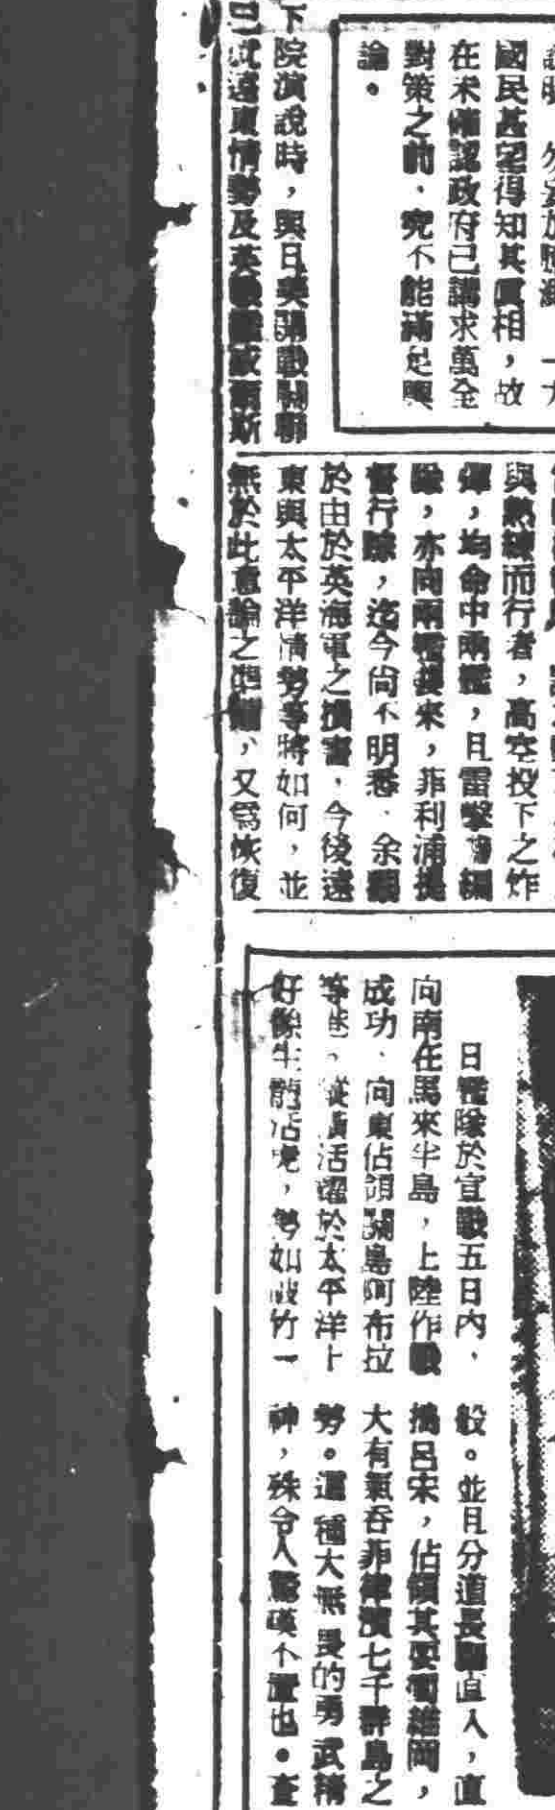 國民甚望得知其眞相，故
在未確認政府已講求萬全
對策之前、究不能滿足輿
論。
下院演說時，與日美開戰關聯
已式遠東情勢及英戰艦威爾斯
與熟練而行者，高空投下之炸
彈，均命中兩艦，且雷擊機編
隊，亦向兩艦襲來，菲利浦提
督行踪，迄今尙不明悉、余關
於由於英海軍之損害，今後遠
東與太平洋情勢等將如何，並
無於此重論之準備，又爲恢復
日艦隊於宣戰五日內，
向南在馬來半島，上陸作戰
成功、向東佔領關島阿布拉
等港。縱橫活躍於太平洋上
好像生龍活虎，勢如破竹一
般。並且分道長驅直入，直
搗呂宋，佔領其要衝雄岡，
大有氣吞菲律濱七千群島之
勢。這種大無畏的勇武精
神，殊令人驚嘆不置也。查